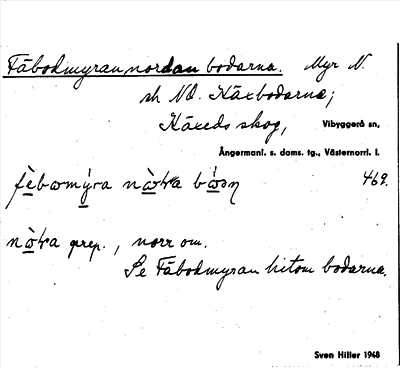 Fäbodmyran nordan bodarna. Myr N.
sh Nd. Käxbodarna;
Käxeds skog, Vibyggerå sn,
Ångermanl. s. doms. tg., Västernorrl. l.
fèbωmýra nὼʀa bώƨn 469.
prep., norr om.
Se Fäbodmyran hitom bodarna.
Sven Hiller 1948